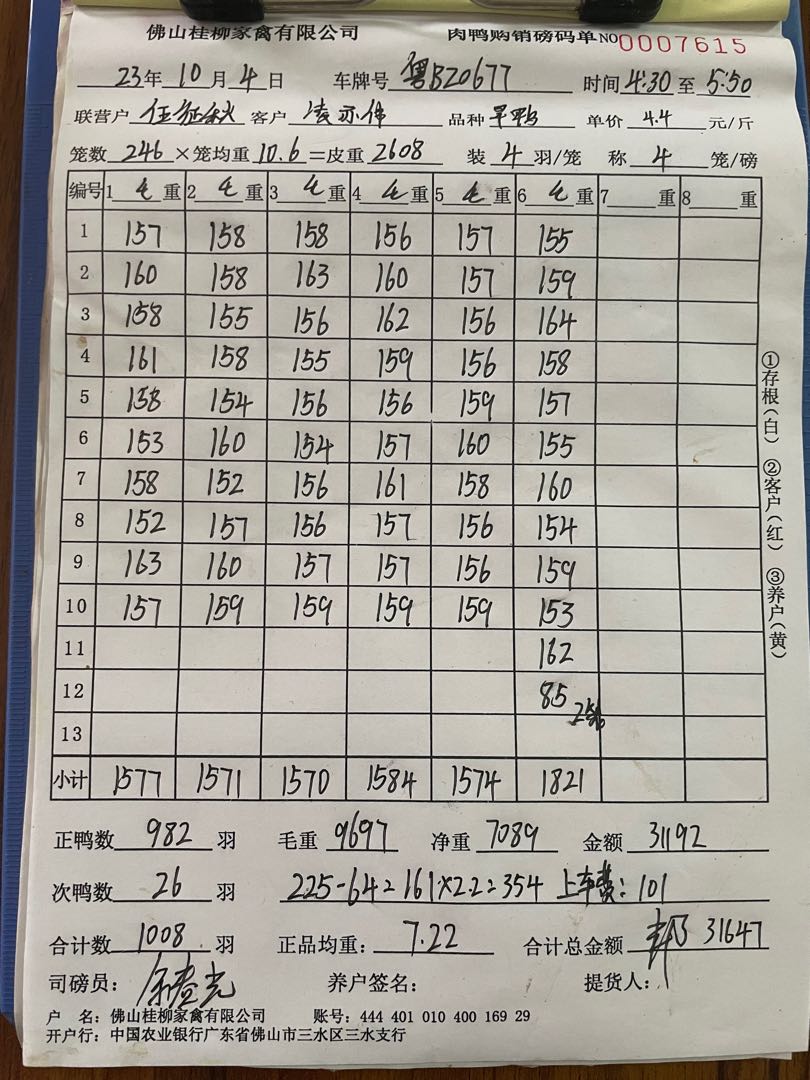 佛山桂柳家禽有限公司 肉鸭购销磅码单 NO 0007615
23年 10月 4日 车牌号 粤BZ0677 时间 4:30 至 5:50
联营户 伍征秋 客户 凌亦伟 品种 旱鸭 单价 4.4 元/斤
笼数 246 ×笼均重 10.6 =皮重 2608 装 4 羽/笼 称 4 笼/磅
编号 1 毛 重 2 毛 重 3 毛 重 4 毛 重 5 毛 重 6 毛 重 7 重 8 重
1 157 158 158 156 157 155
2 160 158 163 160 157 159
3 158 155 156 162 156 164
4 161 158 155 159 156 158
5 158 154 156 156 159 157
6 153 160 154 157 160 155
7 158 152 156 161 158 160
8 152 157 156 157 156 154
9 163 160 157 157 156 159
10 157 159 159 159 159 153
11 162
12 85 2笼
13
小计 1577 1571 1570 1584 1574 1821
正鸭数 982 羽 毛重 9697 净重 7089 金额 31192
次鸭数 26 羽 225-64=161×2.2=354 上车费：101
合计数 1008 羽 正品均重： 7.22 合计总金额 31647
司磅员： 养户签名： 提货人：
户 名：佛山桂柳家禽有限公司 账号：444 401 010 400 169 29
开户行：中国农业银行广东省佛山市三水区三水支行
①存根（白） ②客户（红） ③养户（黄）